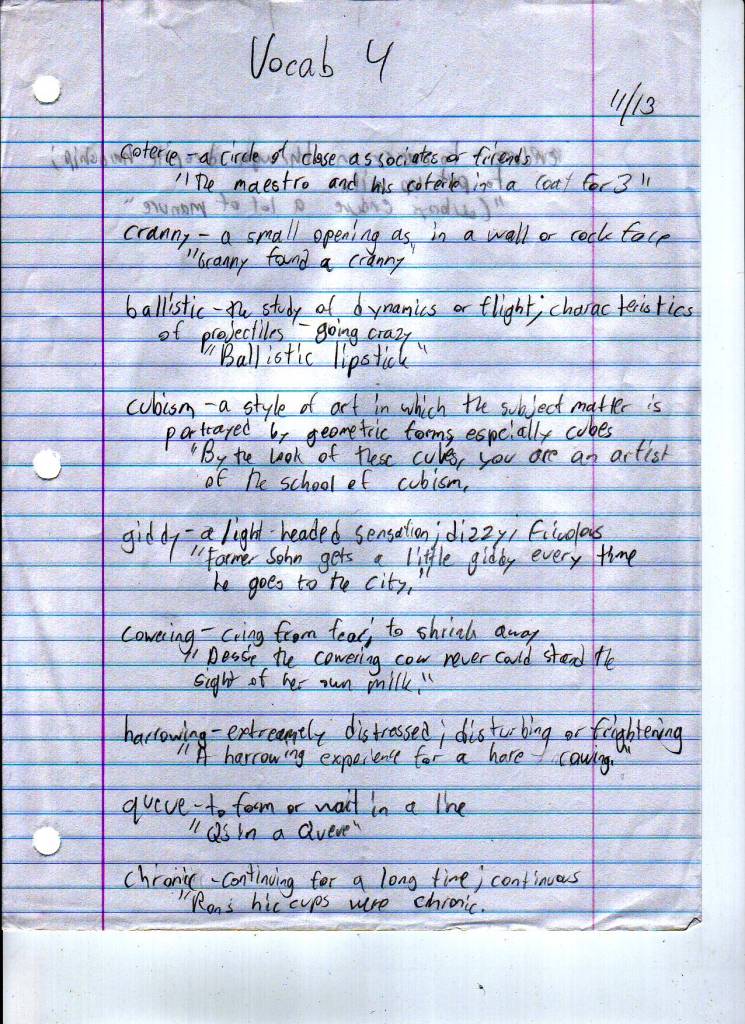 Vocab 4
11/13
Coterie - a circle of close associates or friends
"The maestro and his coterie in a coat for 3"
cranny - a small opening as, in a wall or rock face
"Granny found a cranny"
ballistic - the study of dynamics or flight; characteristics
of projectiles - going crazy
"Ballistic lipstick"
cubism - a style of art in which the subject matter is
portrayed by geometric forms especially cubes
"By the look of these cubes, you are an artist
of the school of cubism,
giddy - a light-headed sensation; dizzy;
"Farmer John gets a little giddy every time
he goes to the city,"
cowering - cring from fear; to shrink away
" the cowering cow never could stand the
sight of her own milk."
harrowing - extreamely distressed; disturbing or frightening
"A harrowing experience for a hare
queue - to form or wait in a line
"Q's in a Queue"
chronic - continuing for a long time; continuous
"Ron's hiccups were chronic.